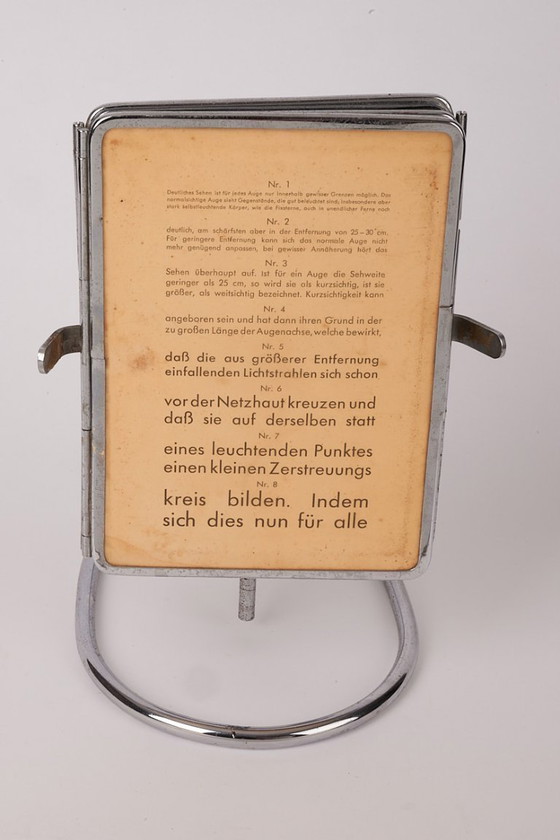 Nr. 1
Deutliches Sehen ist für jedes Auge nur innerhalb gewisser Grenzen möglich. Das
normalsichtige Auge sieht Gegenstände, die gut beleuchtet sind, insbesondere aber
stark selbstleuchtende Körper, wie die Fixsterne, auch in unendlicher Ferne noch
Nr. 2
deutlich, am schärfsten aber in der Entfernung von 25–30 cm.
Für geringere Entfernung kann sich das normale Auge nicht
mehr genügend anpassen, bei gewisser Annäherung hört das
Nr. 3
Sehen überhaupt auf. Ist für ein Auge die Sehweite
geringer als 25 cm, so wird sie als kurzsichtig, ist sie
größer, als weitsichtig bezeichnet. Kurzsichtigkeit kann
Nr. 4
angeboren sein und hat dann ihren Grund in der
zu großen Länge der Augenachse, welche bewirkt,
Nr. 5
daß die aus größerer Entfernung
einfallenden Lichtstrahlen sich schon
Nr. 6
vor der Netzhaut kreuzen und
daß sie auf derselben statt
Nr. 7
eines leuchtenden Punktes
einen kleinen Zerstreuungs
Nr. 8
kreis bilden. Indem
sich dies nun für alle